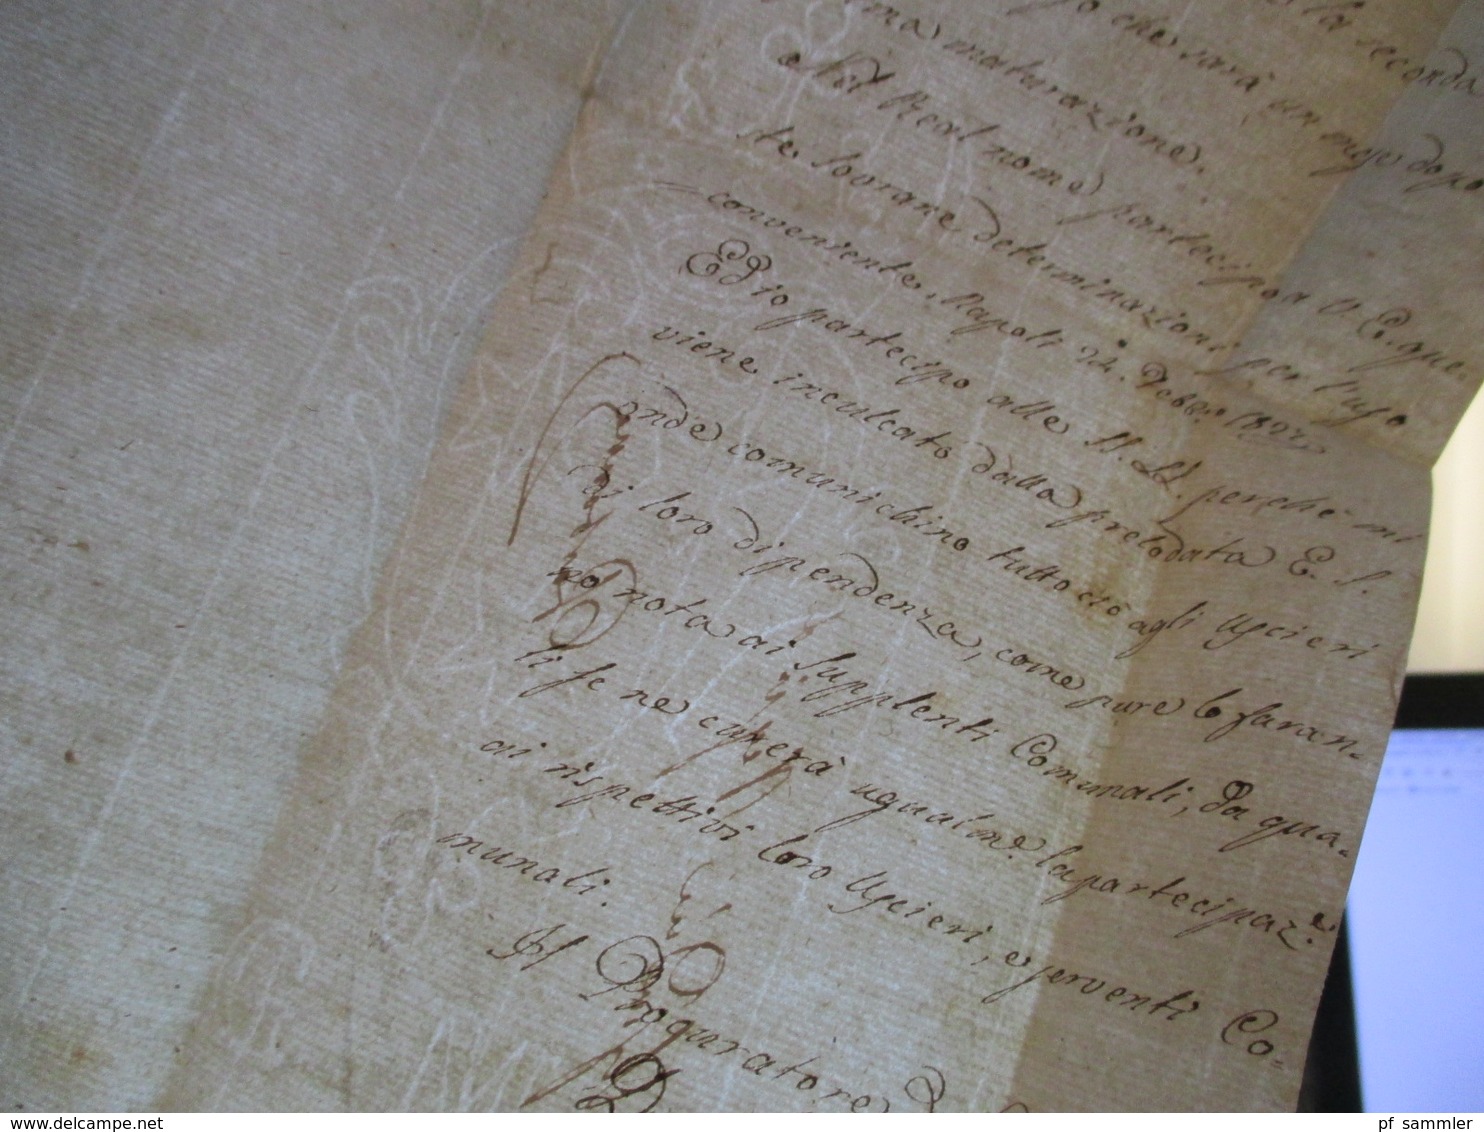 la seconda
che sarà un mese dopo
ma maturazione.
Nel Real nome partecipo a V. E. que-
ste Sovrane determinazioni per l'uso
conveniente. Napoli 22. Febb.º
Ed io partecipo alle SS. LL. perchè mi
viene inculcato dalla prelodata E. S.
onde comunichino tutto ciò agli Uscieri
di loro dipendenza, come pure lo faran-
no nota ai Supplenti Comunali, da qua-
li se ne ugualm.e la partecipaz.e
ai rispettivi loro Uscieri, e serventi Co-
munali.
Il Procuratore
pf_sammler
delcampe.net